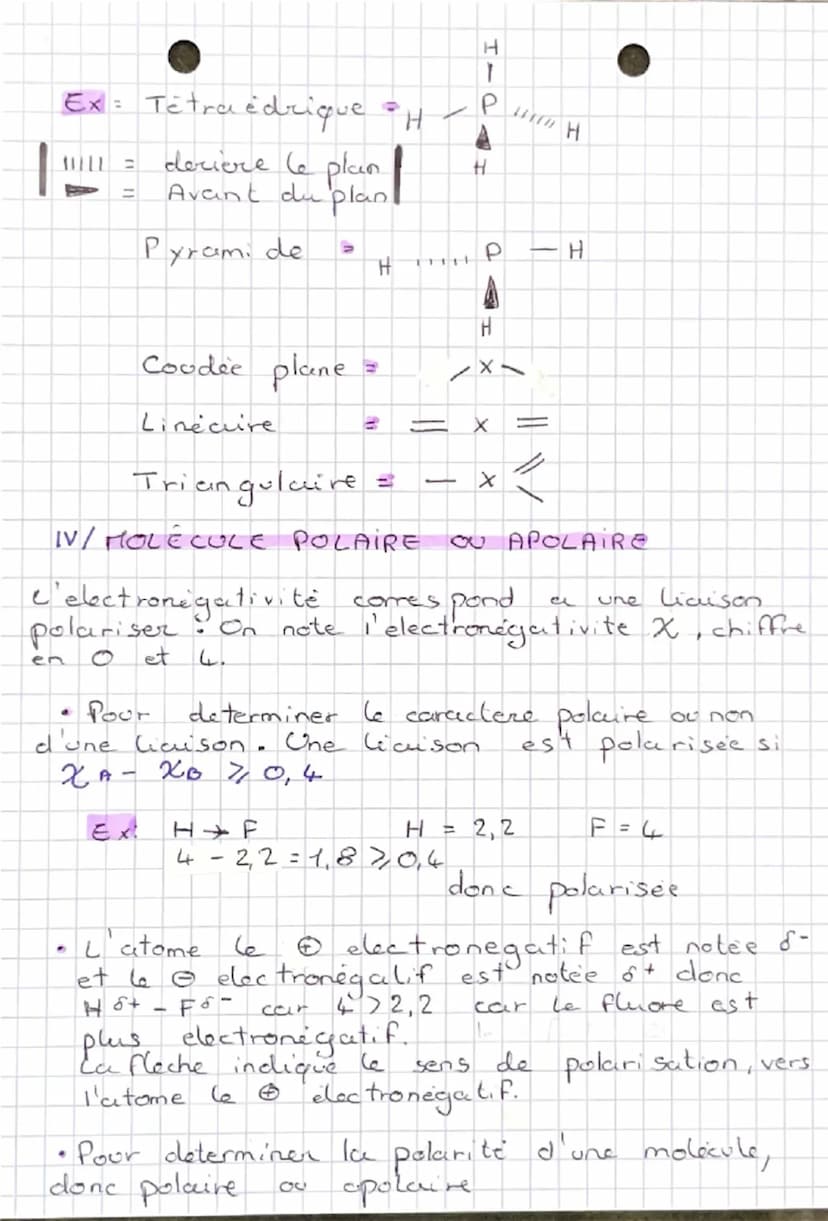 H
Ex = Tétraédrique = H - P H
H
''''' = deriere le plan
= Avant du plan
Pyramide = H ..... P - H
H
Coudée plane = / X \
Linéaire = = X =
Triangulaire = - X
IV/ MOLÉCULE POLAIRE OU APOLAIRE
L'electronégativité correspond a une liaison
polariser : On note l'electronégativite X, chiffre
en 0 et 4.
• Pour determiner le caractere polaire ou non
d'une liaison. Une liaison est polarisée si
χA - χB ⩾ 0,4
Ex: H → F H = 2,2 F = 4
4 - 2,2 = 1,8 ⩾ 0,4
donc polarisée
• L'atome le ⊕ electronegatif est notée δ-
et le ⊖ electronégatif est notée δ+ donc
H δ+ - F δ- car 4 > 2,2 car le fluore est
plus electronégatif.
La fleche indique le sens de polarisation, vers
l'atome le ⊕ électronégatif.
• Pour determiner la polarité d'une molécule,
donc polaire ou apolaire